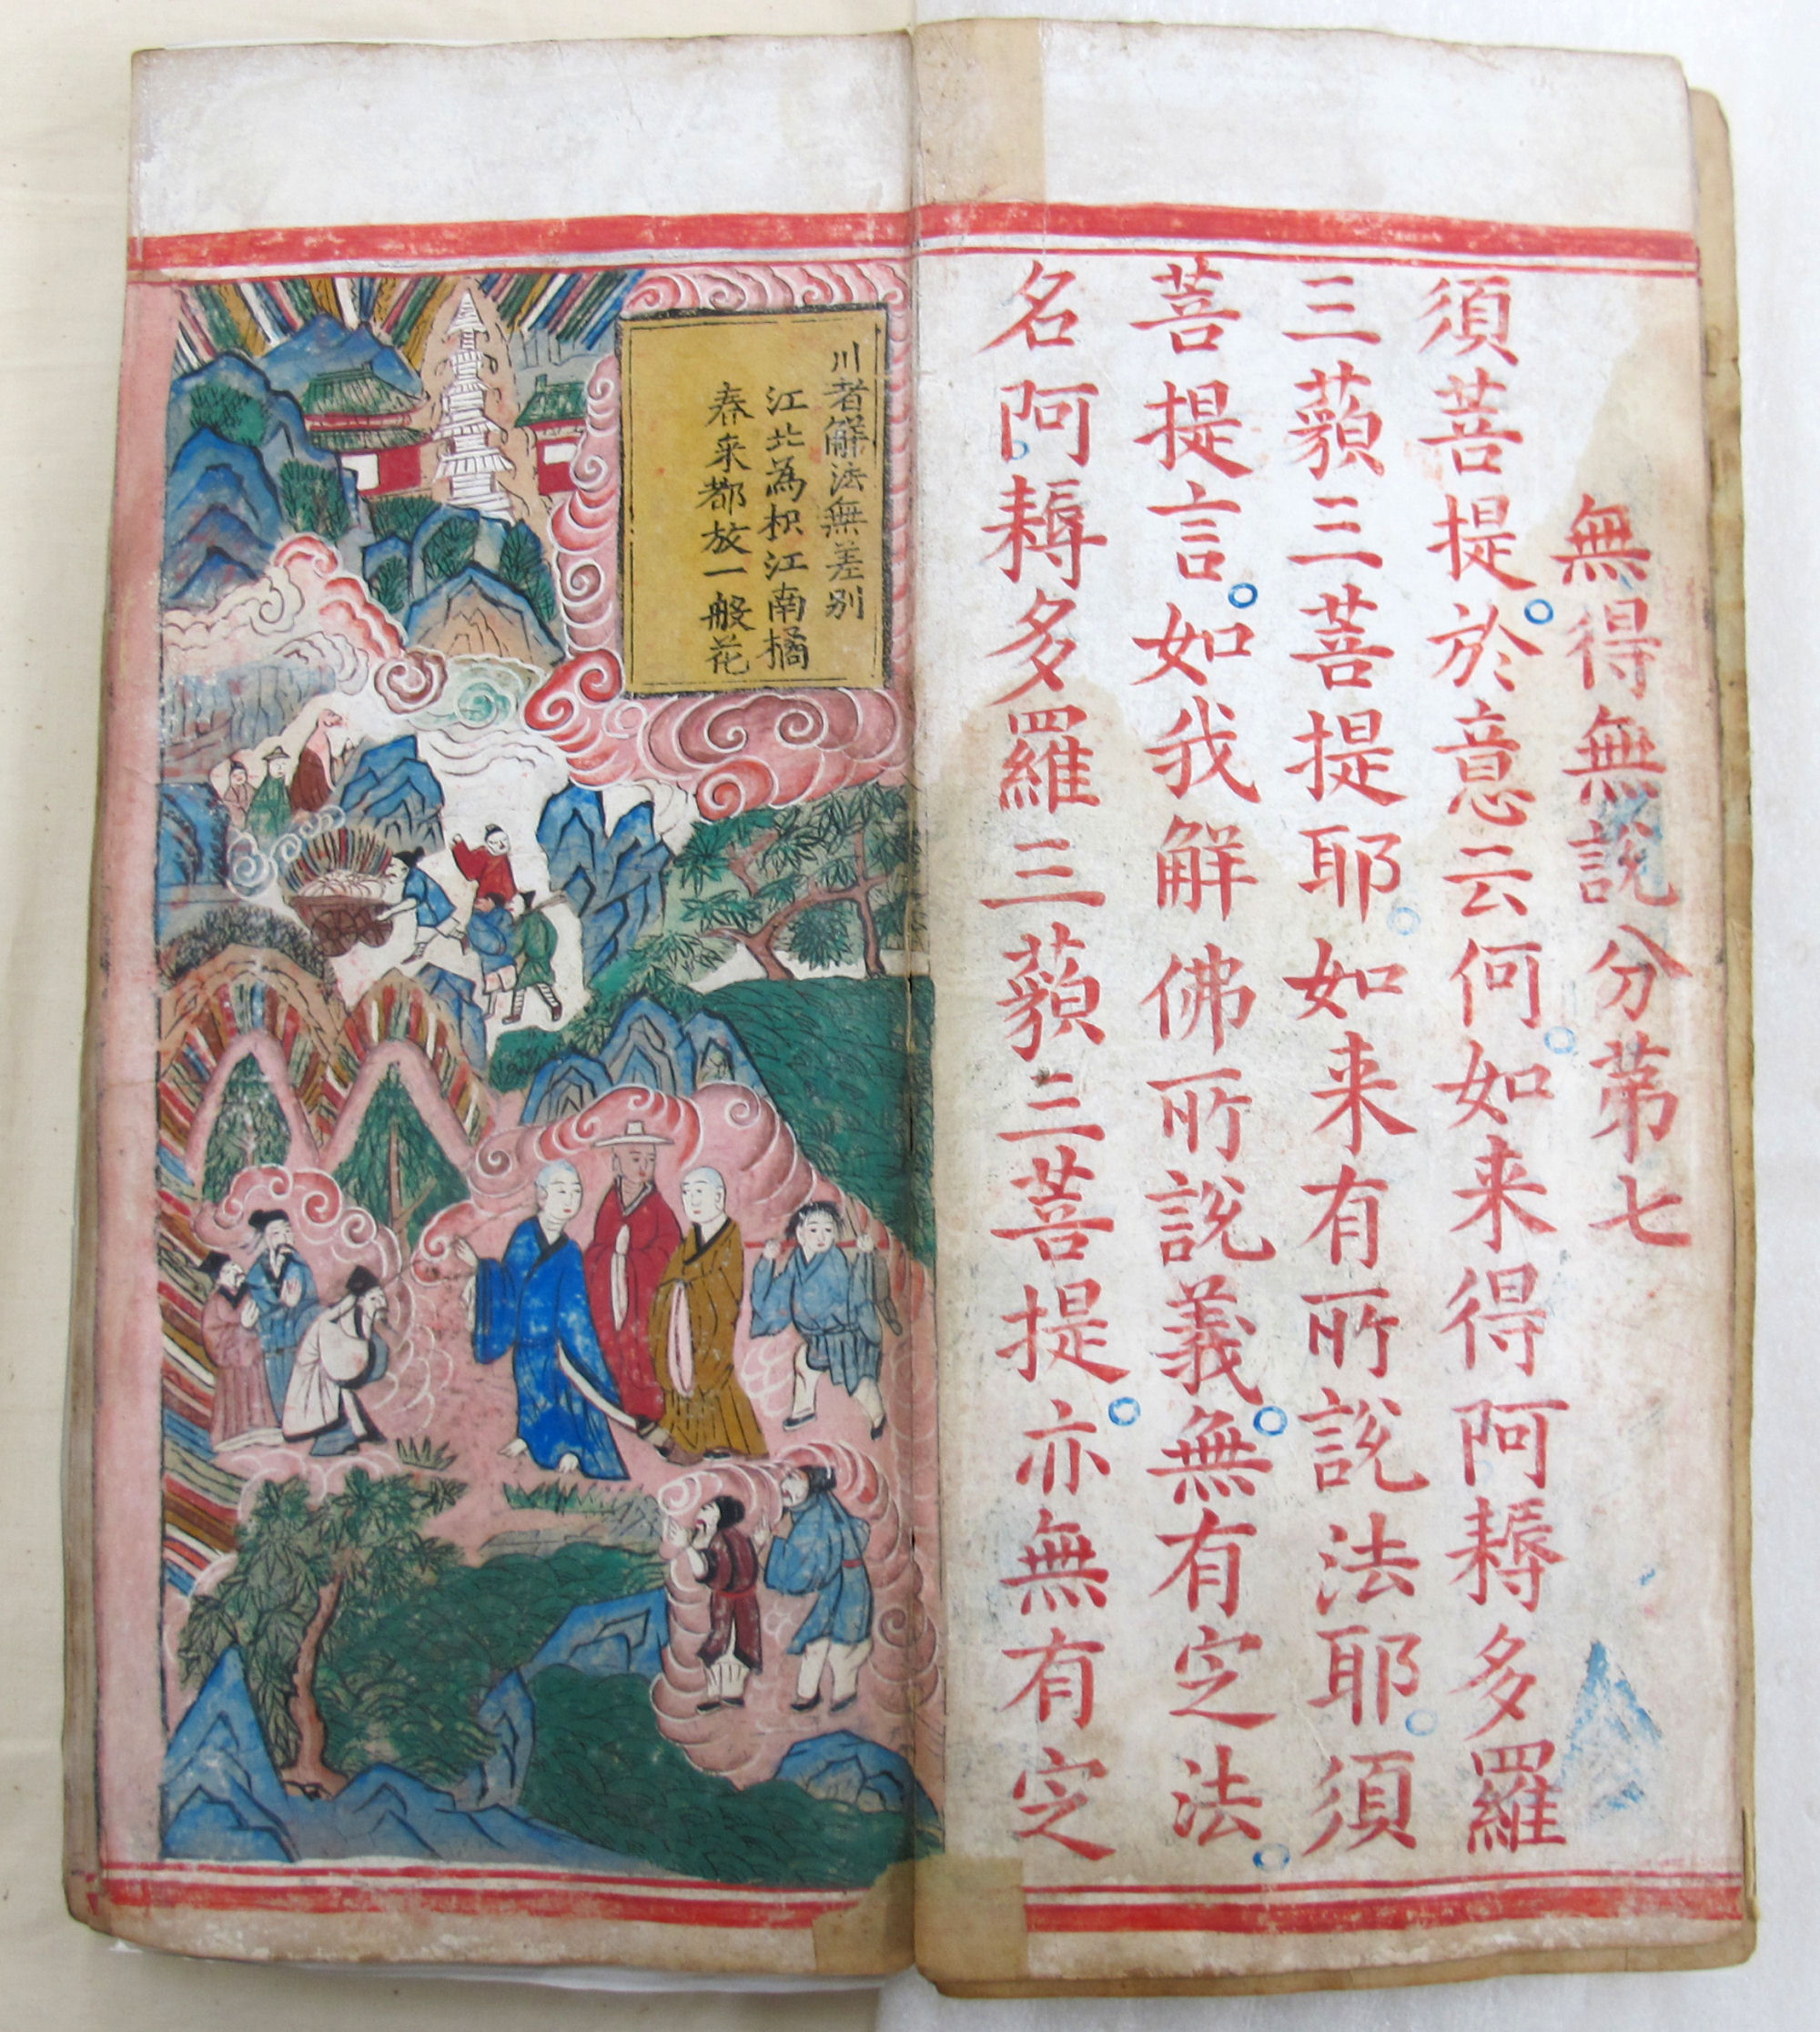 無得無說分苐七
須菩提。於意云何。如来得阿耨多羅
三藐三菩提耶。如来有所說法耶。須
菩提言。如我解佛所說義。無有定法。
名阿耨多羅三藐三菩提。亦無有定
川者解法無差别
江北為枳江南橘
春来都放一般花